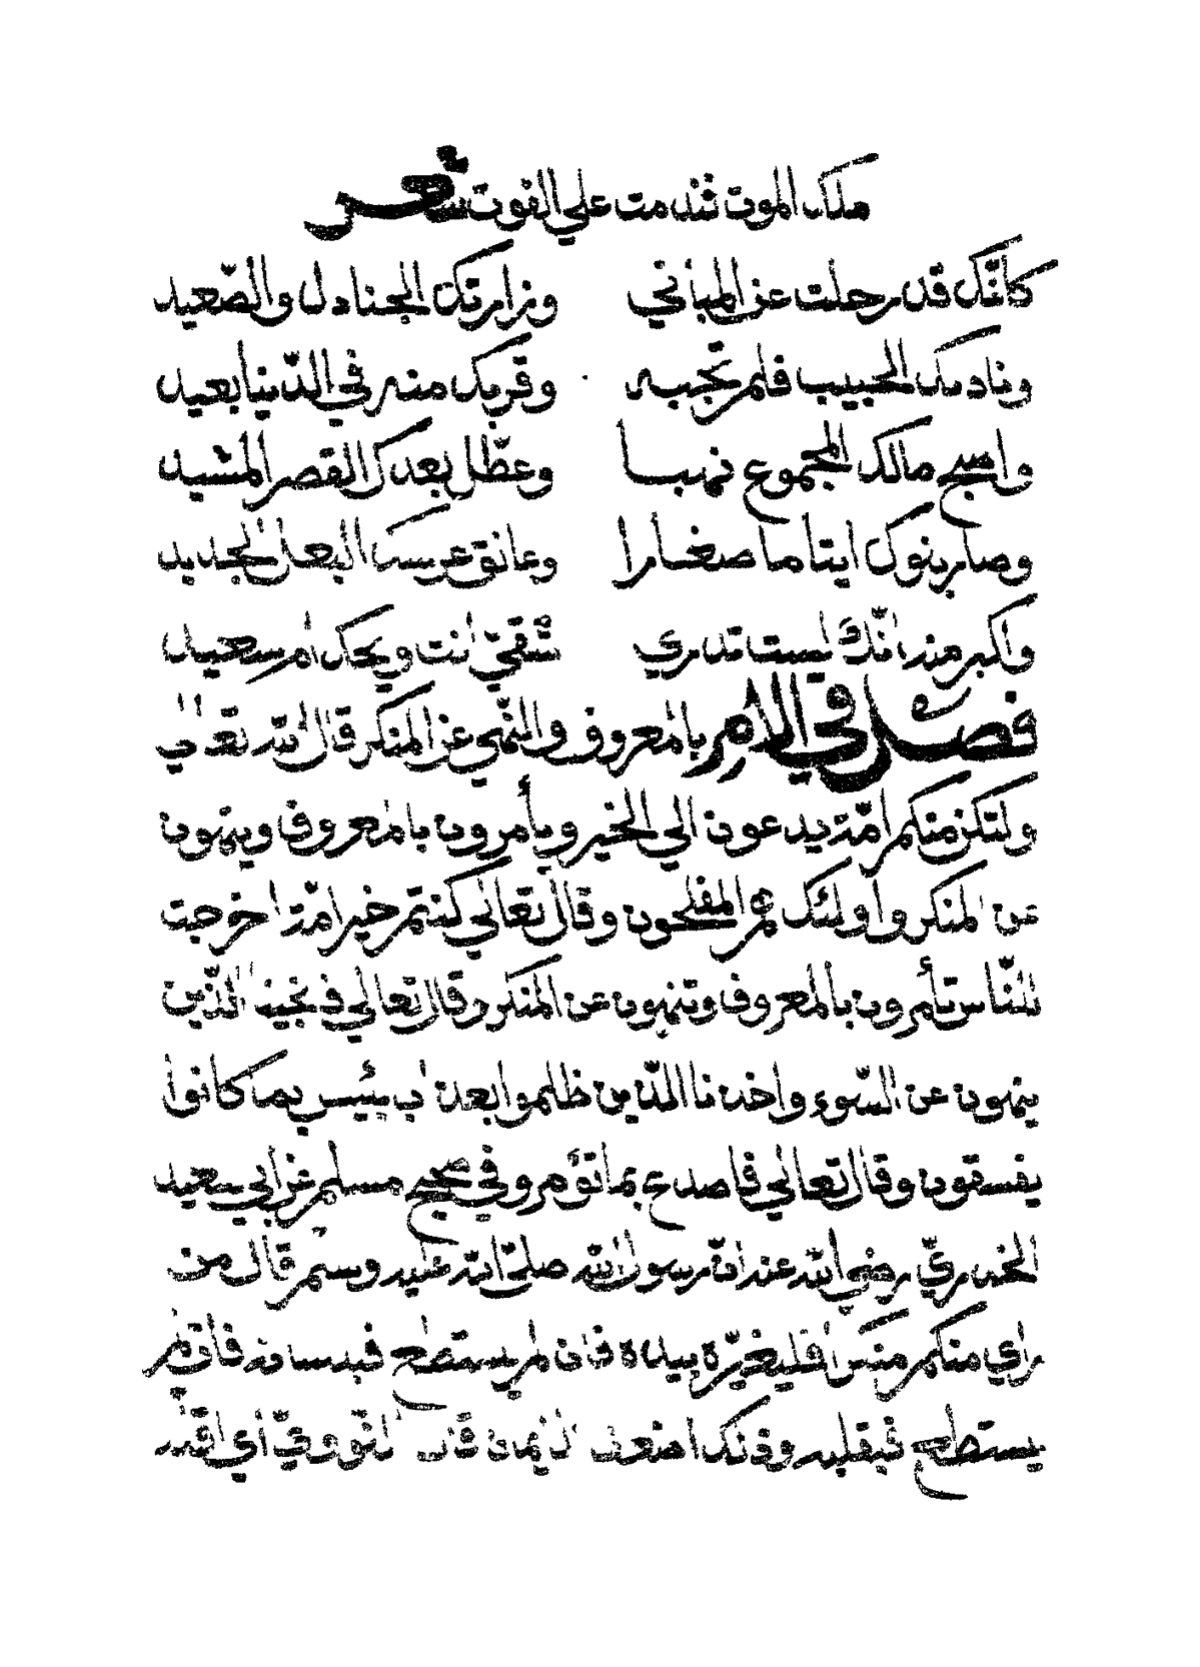 ملك الموت لندمت على الفوت شعر
كأنّك قد رحلت عن المباني وزارتك الجنادل والصّعيد
وناديك الحبيب فلم تجبه وقربك منه في الدّنيا بعيد
واصبح مالك المجموع نهبا وعطّل بعدك القصر المشيد
وصار بنوك ايتاما صغارا وعانق عرسك البعل الجديد
واكبر منه انّك لست تدري شقيّ انت ويحك ام سعيد
فصل في الامر بالمعروف والنّهي عن المنكر قال الله تعالى
ولتكن منكم امّة يدعون الي الخير ويأمرون بالمعروف وينهون
عن المنكر واولئك هم المفلحون وقال تعالي كنتم خير امّة اخرجت
للنّاس تأمرون بالمعروف وتنهون عن المنكر وقال تعالي فانجينا الّذين
ينهون عن السّوء واخذنا الّذين ظلموا بعذاب بئيس بما كانوا
يفسقون وقال تعالي فاصدع بما تؤمر وفي صحيح مسلم عن ابي سعيد
الخدريّ رضي الله عنه انّ رسول الله صلّى الله عليه وسلم قال من
راي منكم منكرا فليغيّره بيده فان لم يستطع فبلسانه فان لم
يستطع فبقلبه وذلك اضعف الايمان قال النّوويّ أي اقلّه